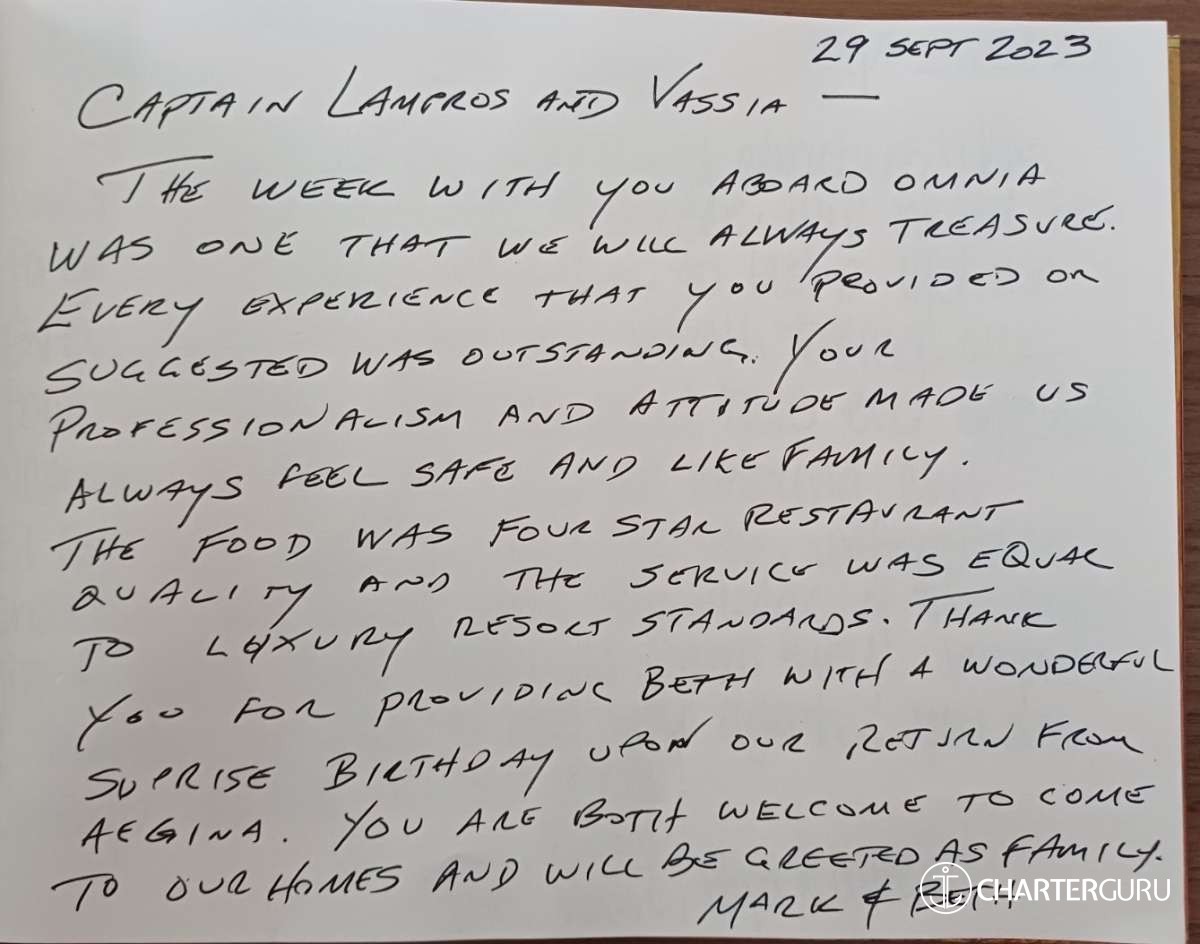 29 SEPT 2023
CAPTAIN LAMPROS AND VASSIA —
THE WEEK WITH YOU ABOARD OMNIA
WAS ONE THAT WE WILL ALWAYS TREASURE.
EVERY EXPERIENCE THAT YOU PROVIDED OR
SUGGESTED WAS OUTSTANDING. YOUR
PROFESSIONALISM AND ATTITUDE MADE US
ALWAYS FEEL SAFE AND LIKE FAMILY.
THE FOOD WAS FOUR STAR RESTAURANT
QUALITY AND THE SERVICE WAS EQUAL
TO LUXURY RESORT STANDARDS. THANK
YOU FOR PROVIDING BETH WITH A WONDERFUL
SUPRISE BIRTHDAY UPON OUR RETURN FROM
AEGINA. YOU ARE BOTH WELCOME TO COME
TO OUR HOMES AND WILL BE GREETED AS FAMILY.
MARK & BETH
CHARTERGURU